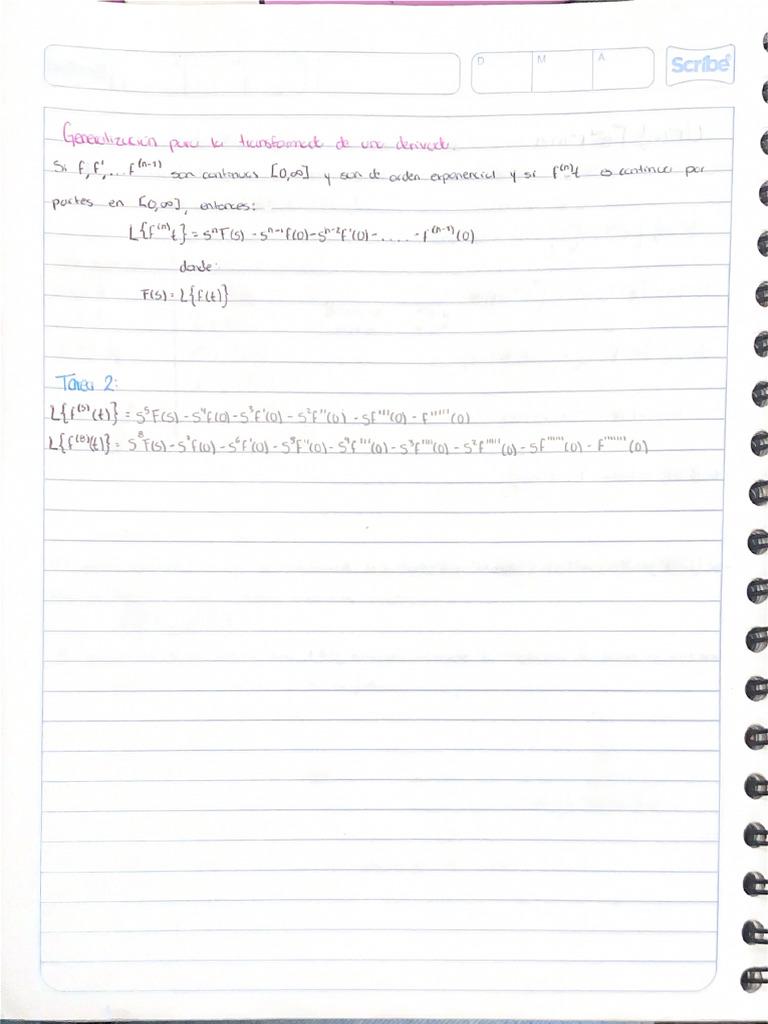 D M A Scribe
Generalización para la transformada de una derivada.
Si f, f', ... f^(n-1) son continuas [0,∞] y son de orden exponencial y si f^(n)t es continua por
partes en [0,∞], entonces:
L{f^(n)t} = s^n F(s) - s^n-1 f(0) - s^n-2 f'(0) - ..... - f^(n-1)(0)
donde:
F(s) = L{f(t)}
Tarea 2:
L{f^(5)(t)} = s^5 F(s) - s^4 f(0) - s^3 f'(0) - s^2 f''(0) - s f'''(0) - f''''(0)
L{f^(8)(t)} = s^8 F(s) - s^7 f(0) - s^6 f'(0) - s^5 f''(0) - s^4 f'''(0) - s^3 f''''(0) - s^2 f'''''(0) - s f''''''(0) - f'''''''(0)